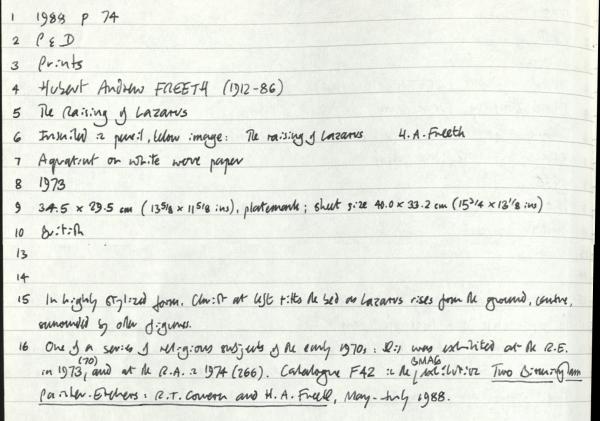 1 1988 P 74
2 P & D
3 Prints
4 Hubert Andrew FREETH (1912-86)
5 The Raising of Lazarus
6 Inscribed in pencil, below image: The raising of Lazarus H.A. Freeth
7 Aquatint on white wove paper
8 1973
9 34.5 x 29.5 cm (13 5/8 x 11 5/8 ins), platemark; sheet size 40.0 x 33.2 cm (15 3/4 x 13 1/8 ins)
10 British
13
14
15 In highly stylized form. Christ at left the bed as Lazarus rises from the ground, centre,
surrounded by other figures.
16 One of a series of religious subjects of the early 1970s: this was exhibited at the R.E.
in 1973 (70), and at the R.A. in 1974 (266). Catalogue F42 in the BMAG exhibition Two Birmingham
Painter-Etchers: R.T. Cowern and H.A. Freeth, May-July 1988.